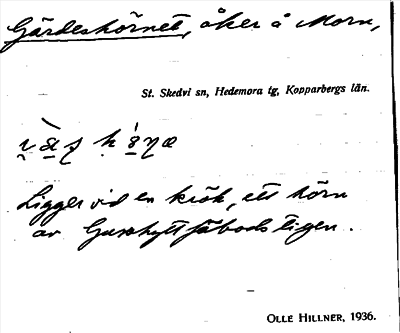 Gärdeshörnet, åker å Morn,
St. Skedvi sn, Hedemora tg, Kopparbergs län.
Ligger vid en krök, ett hörn
av Gusshyttfäbodstigen.
OLLE HILLNER, 1936.